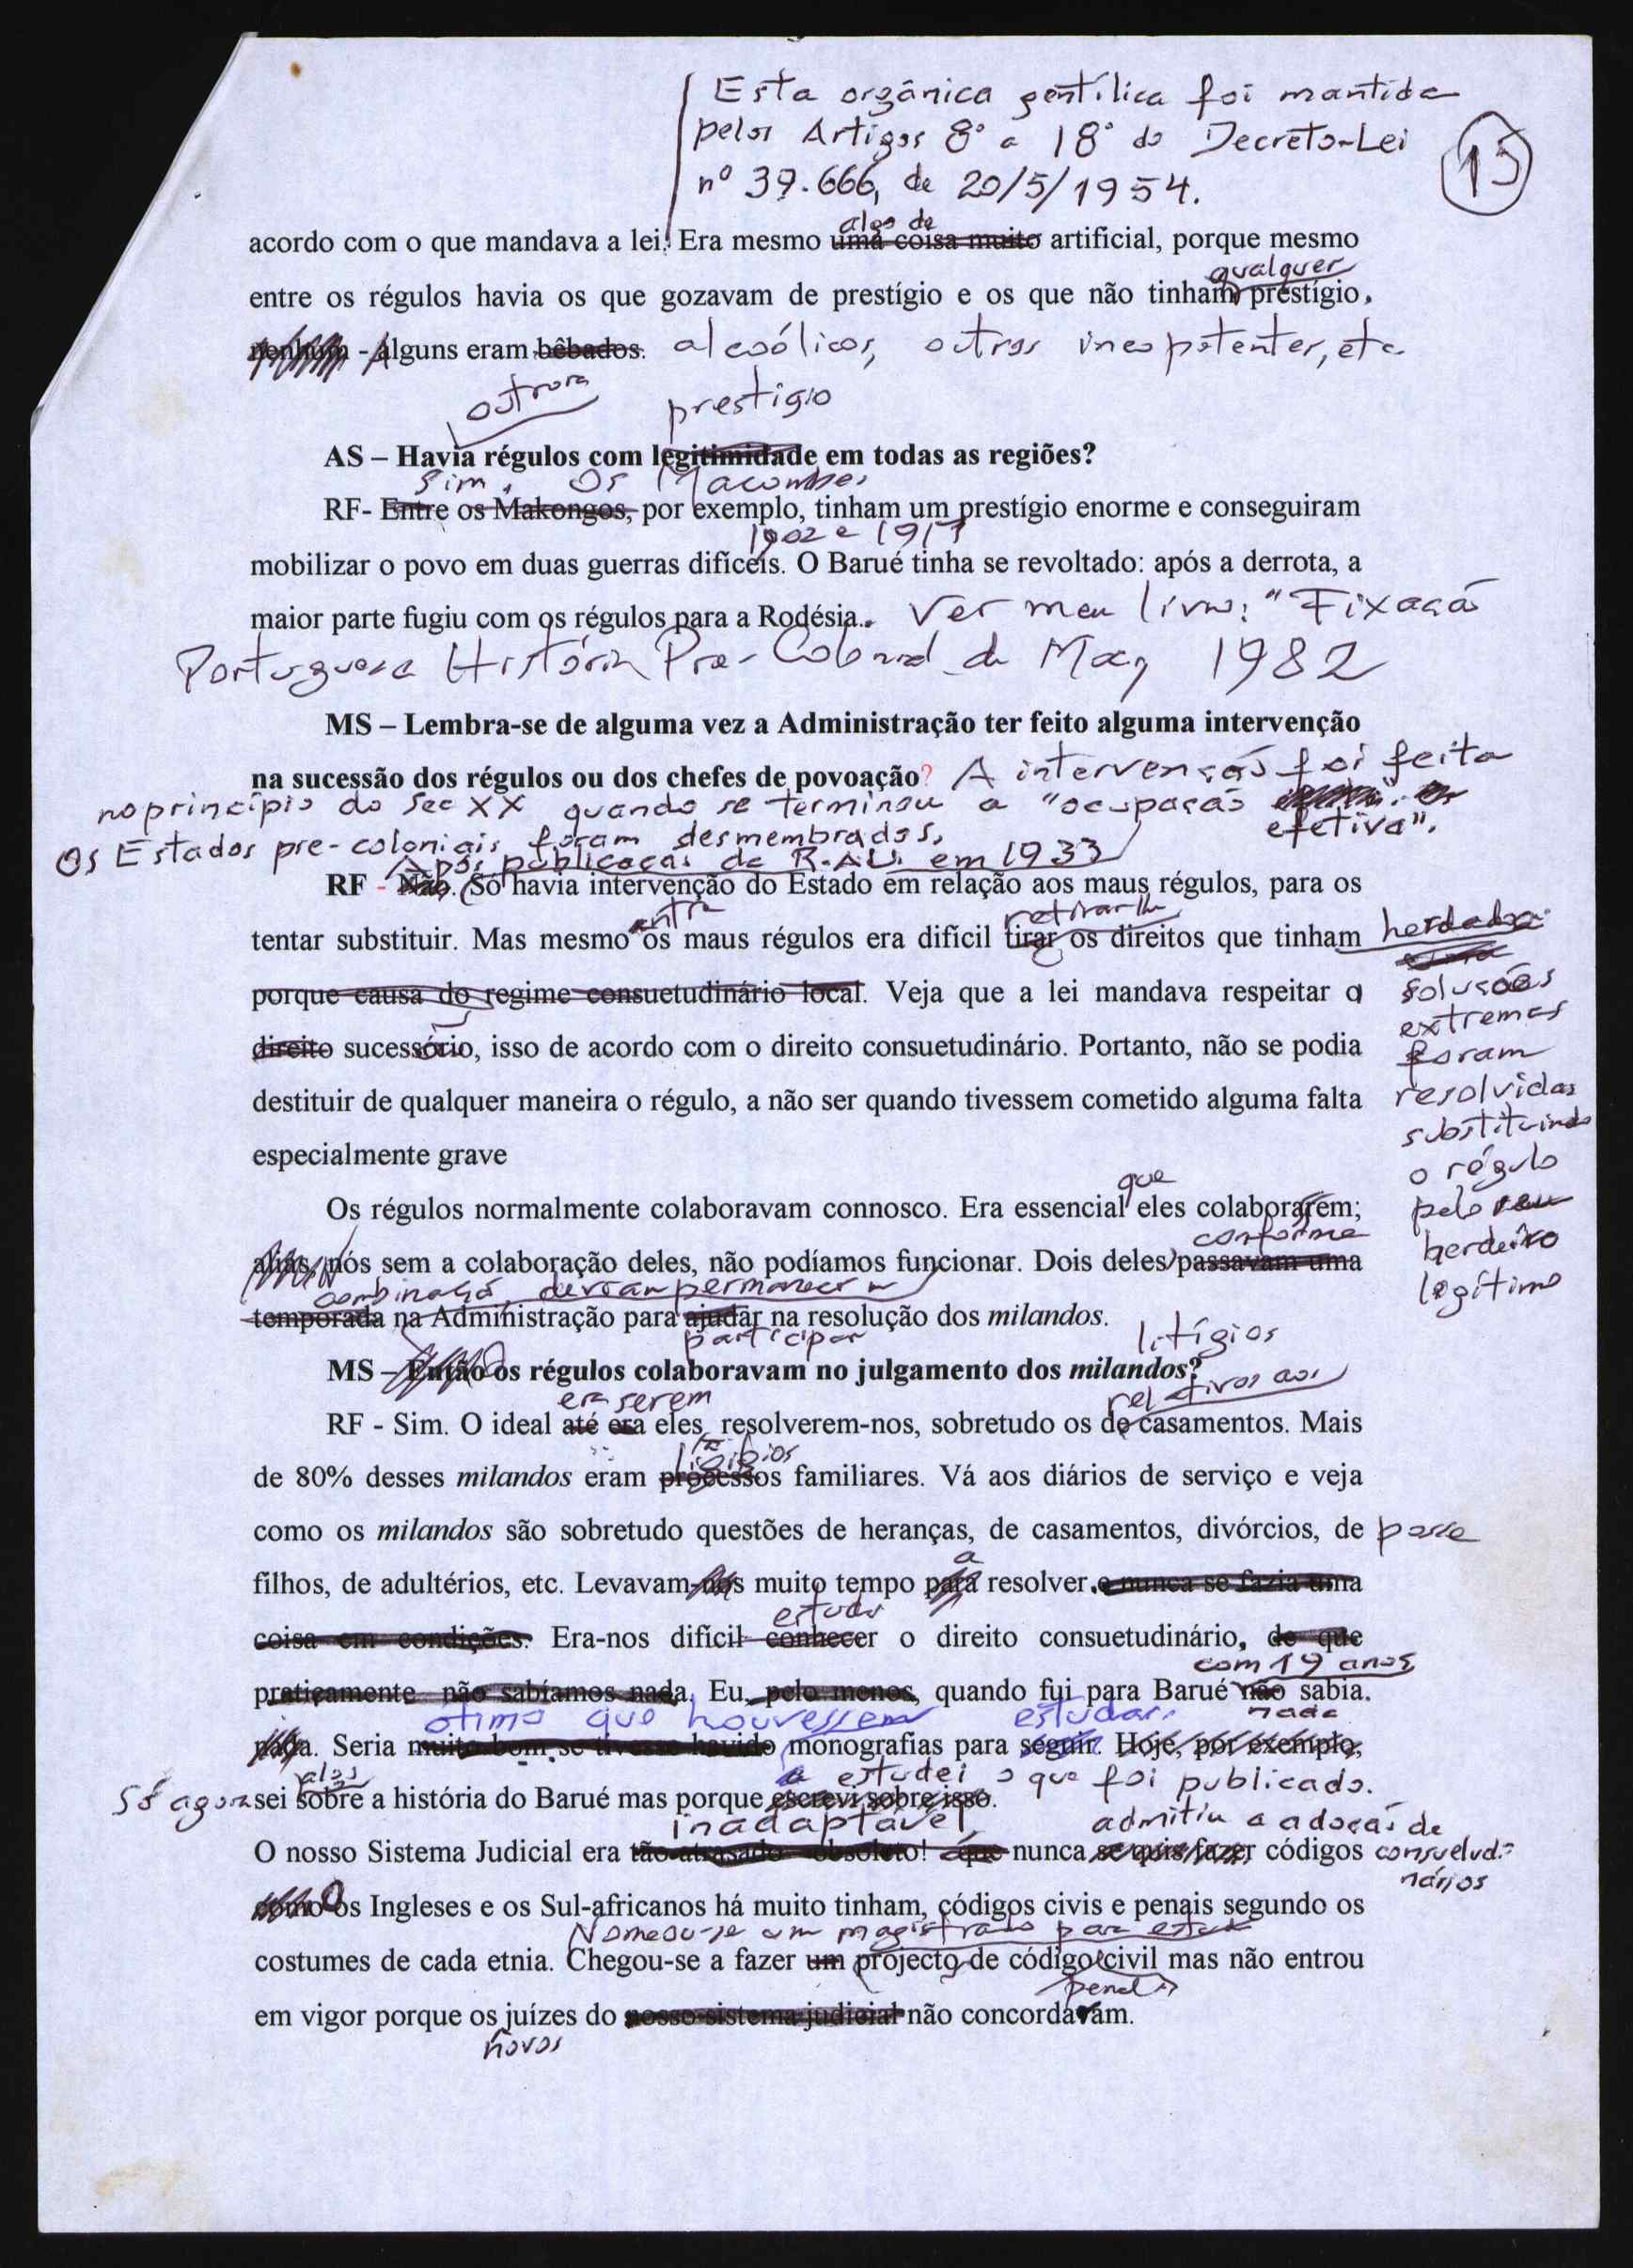 Esta orgânica gentílica foi mantida
pelos Artigos 8º a 18º do Decreto-Lei
nº 39.666, de 20/5/1954.
15
algo de
acordo com o que mandava a lei. Era mesmo uma coisa muito artificial, porque mesmo
qualquer
entre os régulos havia os que gozavam de prestígio e os que não tinham prestígio,
nenhum - Alguns eram bêbados. alcoólicos, outros incopotentes, etc.
outrora prestígio
AS – Havia régulos com legitimidade em todas as regiões?
Sim. Os Macombes
RF- Entre os Makongos, por exemplo, tinham um prestígio enorme e conseguiram
1902 e 1917
mobilizar o povo em duas guerras difíceis. O Barué tinha se revoltado: após a derrota, a
maior parte fugiu com os régulos para a Rodésia. Ver meu livro: "Fixação
Portuguesa História Pré-Colonial de Moç 1982
MS – Lembra-se de alguma vez a Administração ter feito alguma intervenção
na sucessão dos régulos ou dos chefes de povoação? A intervenção foi feita
no princípio do Sec XX quando se terminou a "ocupação
efetiva".
Os Estados pre-coloniais foram desmembrados.
Após publicação da R.A.U. em 1933
RF - Não. (Só havia intervenção do Estado em relação aos maus régulos, para os
entre retirar-lhe
tentar substituir. Mas mesmo os maus régulos era difícil tirar os direitos que tinham herdado
porque causa do regime consuetudinário local. Veja que a lei mandava respeitar o
direito sucessório, isso de acordo com o direito consuetudinário. Portanto, não se podia
destituir de qualquer maneira o régulo, a não ser quando tivessem cometido alguma falta
especialmente grave
soluções
extremas
foram
resolvidas
substituindo
o régulo
pelo seu
herdeiro
legítimo
que
Os régulos normalmente colaboravam connosco. Era essencial eles colaborarem;
conforme
aliás, nós sem a colaboração deles, não podíamos funcionar. Dois deles passavam uma
combinação, deviam permanecer
temporada na Administração para ajudar na resolução dos milandos.
participar litígios
MS – Então os régulos colaboravam no julgamento dos milandos?
era serem relativos aos
RF - Sim. O ideal até era eles resolverem-nos, sobretudo os de casamentos. Mais
litígios
de 80% desses milandos eram processos familiares. Vá aos diários de serviço e veja
como os milandos são sobretudo questões de heranças, de casamentos, divórcios, de posse
a
filhos, de adultérios, etc. Levavam-nos muito tempo para resolver e nunca se fazia uma
estudar
coisa em condições. Era-nos difícil conhecer o direito consuetudinário, do que
com 19 anos
praticamente não sabíamos nada. Eu, pelo menos, quando fui para Barué não sabia.
otimo que houvessem estudar. nada
nada. Seria muito bom se tivesse havido monografias para seguir. Hoje, por exemplo,
algo estudei o que foi publicado.
Só agora sei sobre a história do Barué mas porque escrevi sobre isso.
inadaptável, admitiu a adoção de
O nosso Sistema Judicial era tão atrasado obsoleto! que nunca se quis fazer códigos consuetudi-
nários
como os Ingleses e os Sul-africanos há muito tinham, códigos civis e penais segundo os
Nomeou-se um magistrado para
costumes de cada etnia. Chegou-se a fazer um projecto de código civil mas não entrou
penal
em vigor porque os juízes do nosso sistema judicial não concordavam.
novos